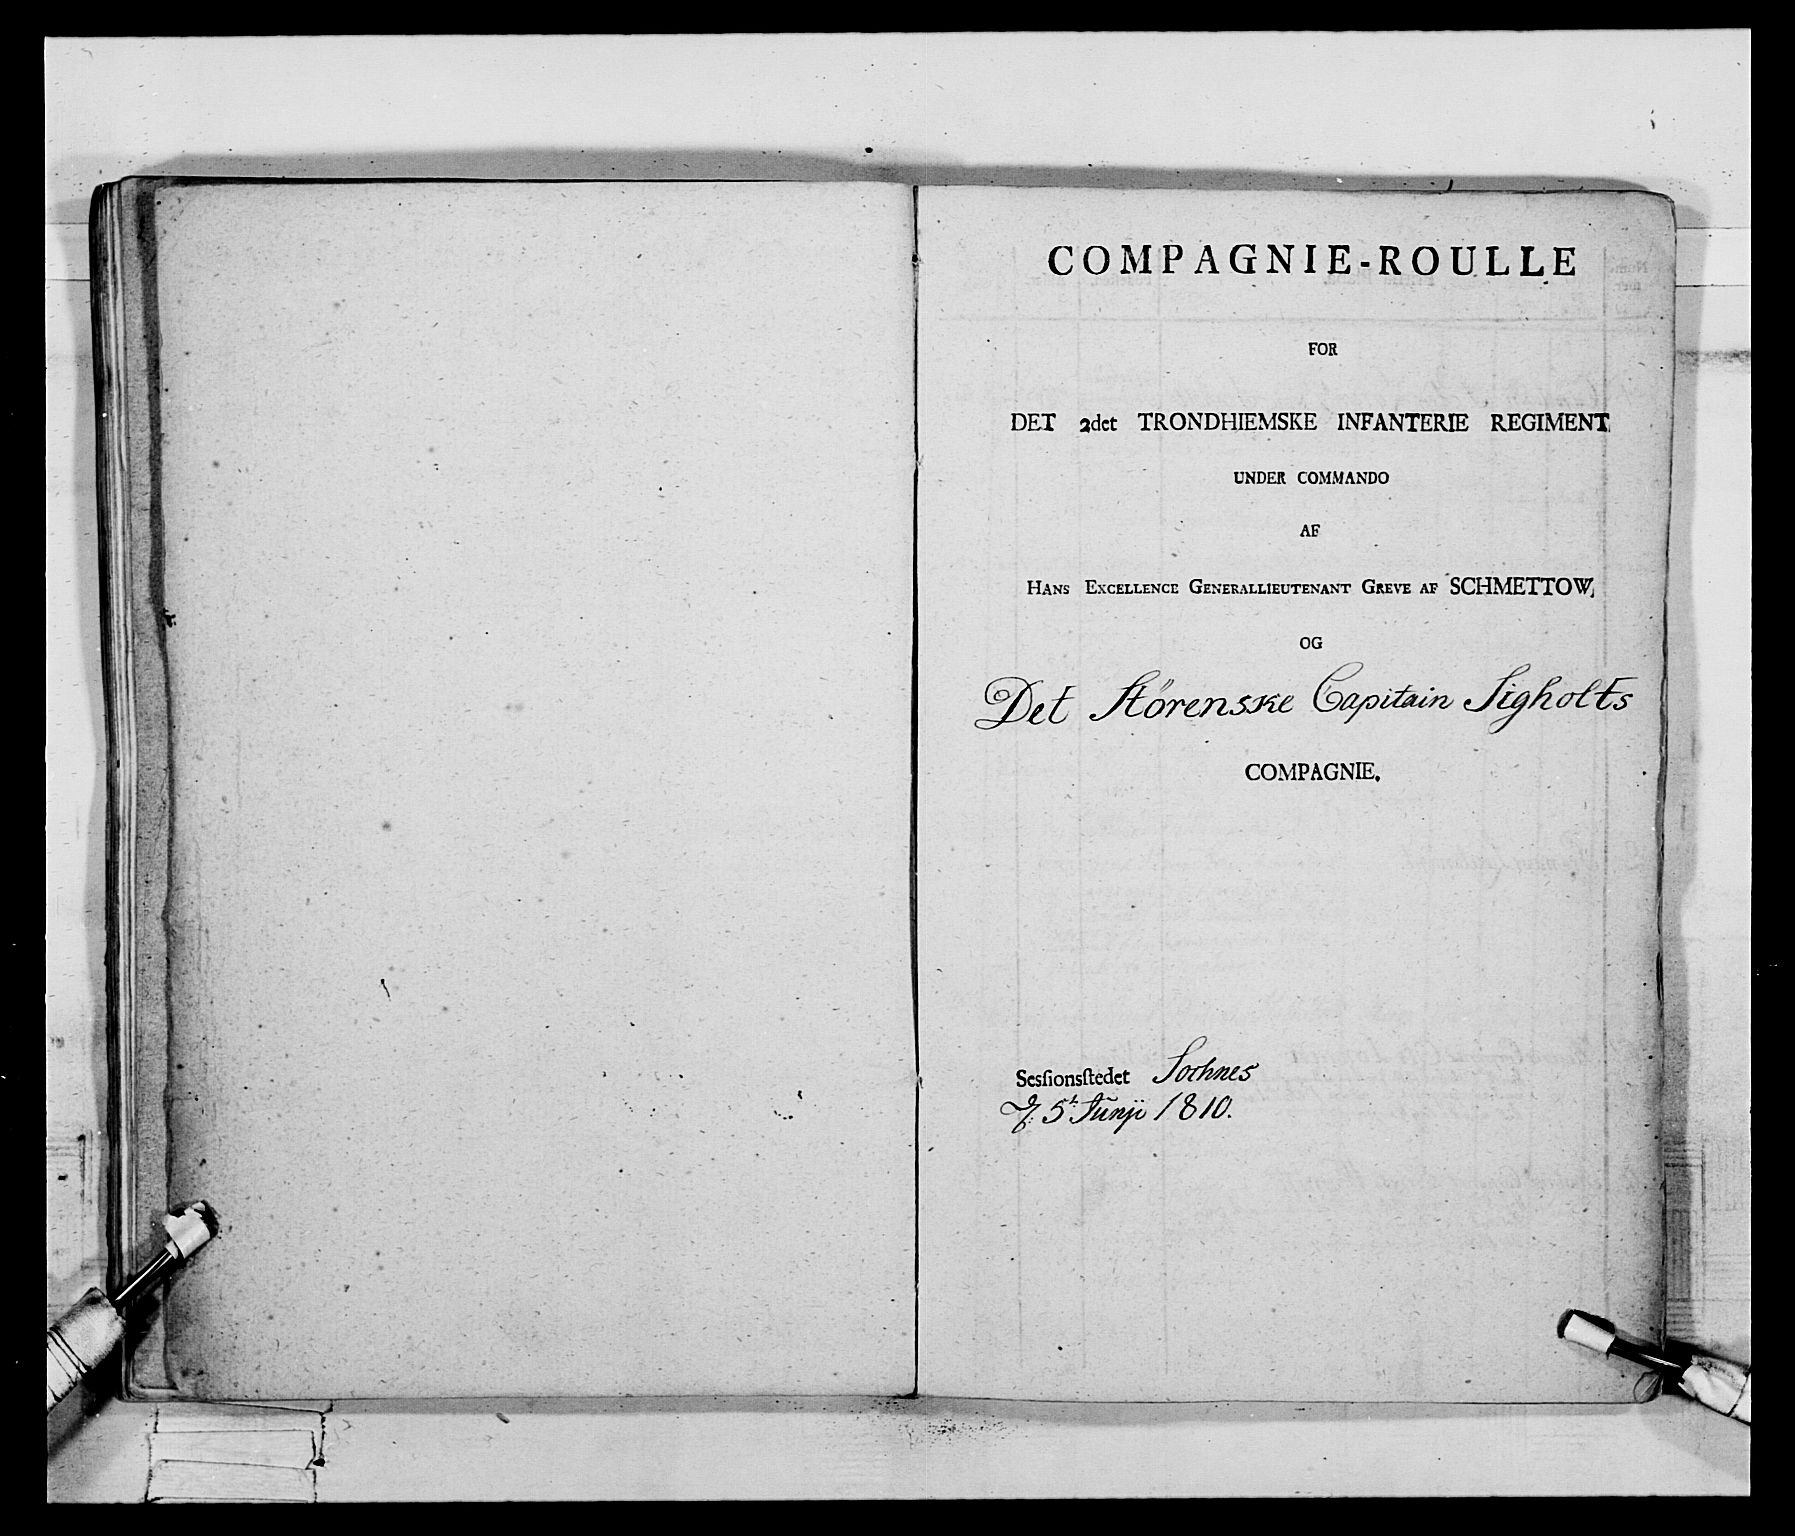 COMPAGNIE-ROULLE
FOR
DET 2det TRONDHIEMSKE INFANTERIE REGIMENT
UNDER COMMANDO
AF
HANS EXCELLENCE GENERALLIEUTENANT GREVE AF SCHMETTOW,
OG
Det Störenske Capitain Sigholts
COMPAGNIE.
Sesſionsſtedet Sochnes
5t Junji 1810.